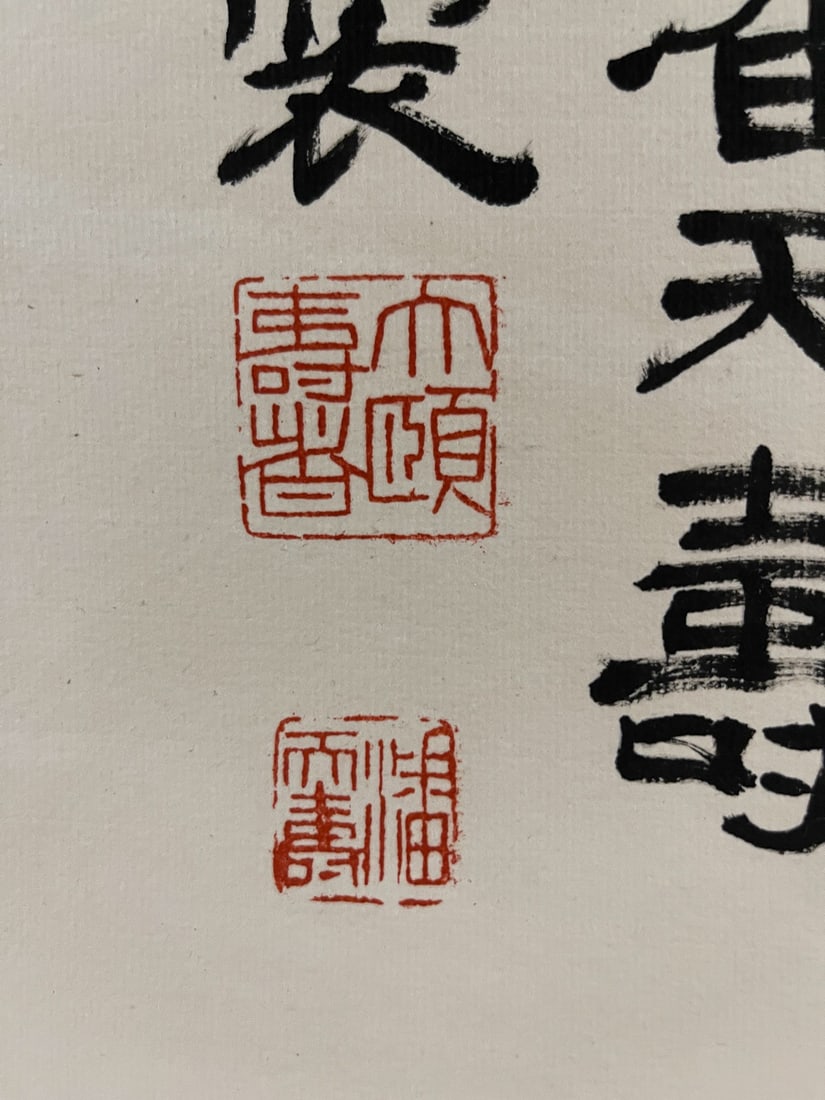 天壽
製
大頤
壽者
潘
天壽